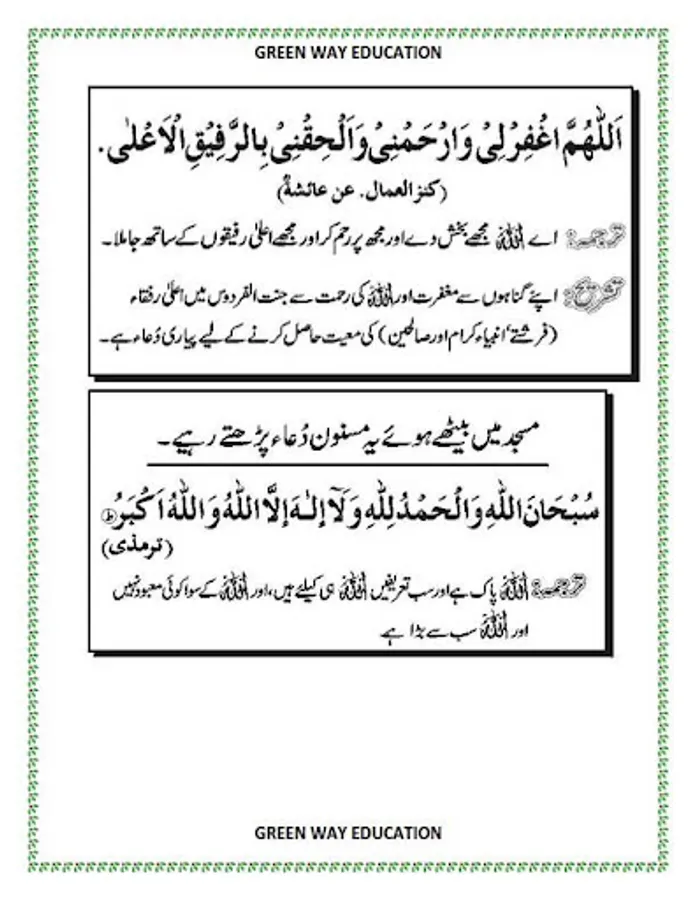 GREEN WAY EDUCATION
اَللّٰهُمَّ اغْفِرْلِیْ وَارْحَمْنِیْ وَاَلْحِقْنِیْ بِالرَّفِیْقِ الْاَعْلٰی.
(کنز العمال. عن عائشةؓ)
ترجمہ: اے اللہ مجھے بخش دے اور مجھ پر رحم کر اور مجھے اعلیٰ رفیقوں کے ساتھ جا ملا۔
تشریح: اپنے گناہوں سے مغفرت اور اللہ کی رحمت سے جنت الفردوس میں اعلیٰ رفقاء
(فرشتے' انبیاء کرام اور صالحین) کی معیت حاصل کرنے کے لیے پیاری دُعاء ہے۔
مسجد میں بیٹھے ہوئے یہ مسنون دُعاء پڑھتے رہیے۔
سُبْحَانَ اللّٰهِ وَالْحَمْدُ لِلّٰهِ وَلَآ اِلٰـهَ اِلَّا اللّٰهُ وَاللّٰهُ اَكْبَرُ ؕ
(ترمذی)
ترجمہ: اللہ پاک ہے اور سب تعریفیں اللہ ہی کیلئے ہیں، اور اللہ کے سوا کوئی معبود نہیں
اور اللہ سب سے بڑا ہے
GREEN WAY EDUCATION